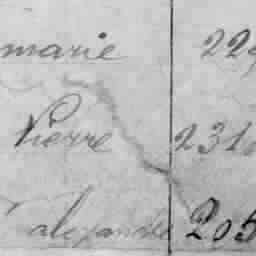 marie 229
Pierre 231
alexandre 205